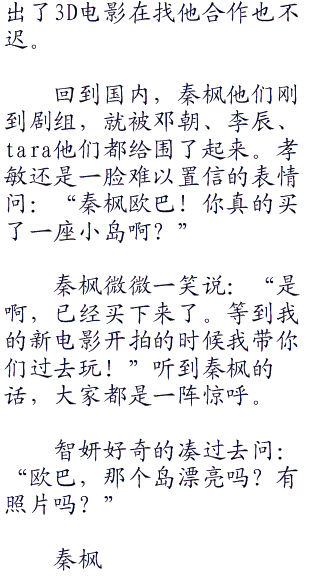 出了3D电影在找他合作也不
迟。
回到国内，秦枫他们刚
到剧组，就被邓朝、李辰、
tara他们都给围了起来。孝
敏还是一脸难以置信的表情
问：“秦枫欧巴！你真的买
了一座小岛啊？”
秦枫微微一笑说：“是
啊，已经买下来了。等到我
的新电影开拍的时候我带你
们过去玩！”听到秦枫的
话，大家都是一阵惊呼。
智妍好奇的凑过去问：
“欧巴，那个岛漂亮吗？有
照片吗？”
秦枫